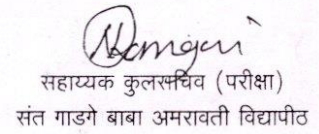 सहाय्यक कुलसचिव (परीक्षा)
संत गाडगे बाबा अमरावती विद्यापीठ